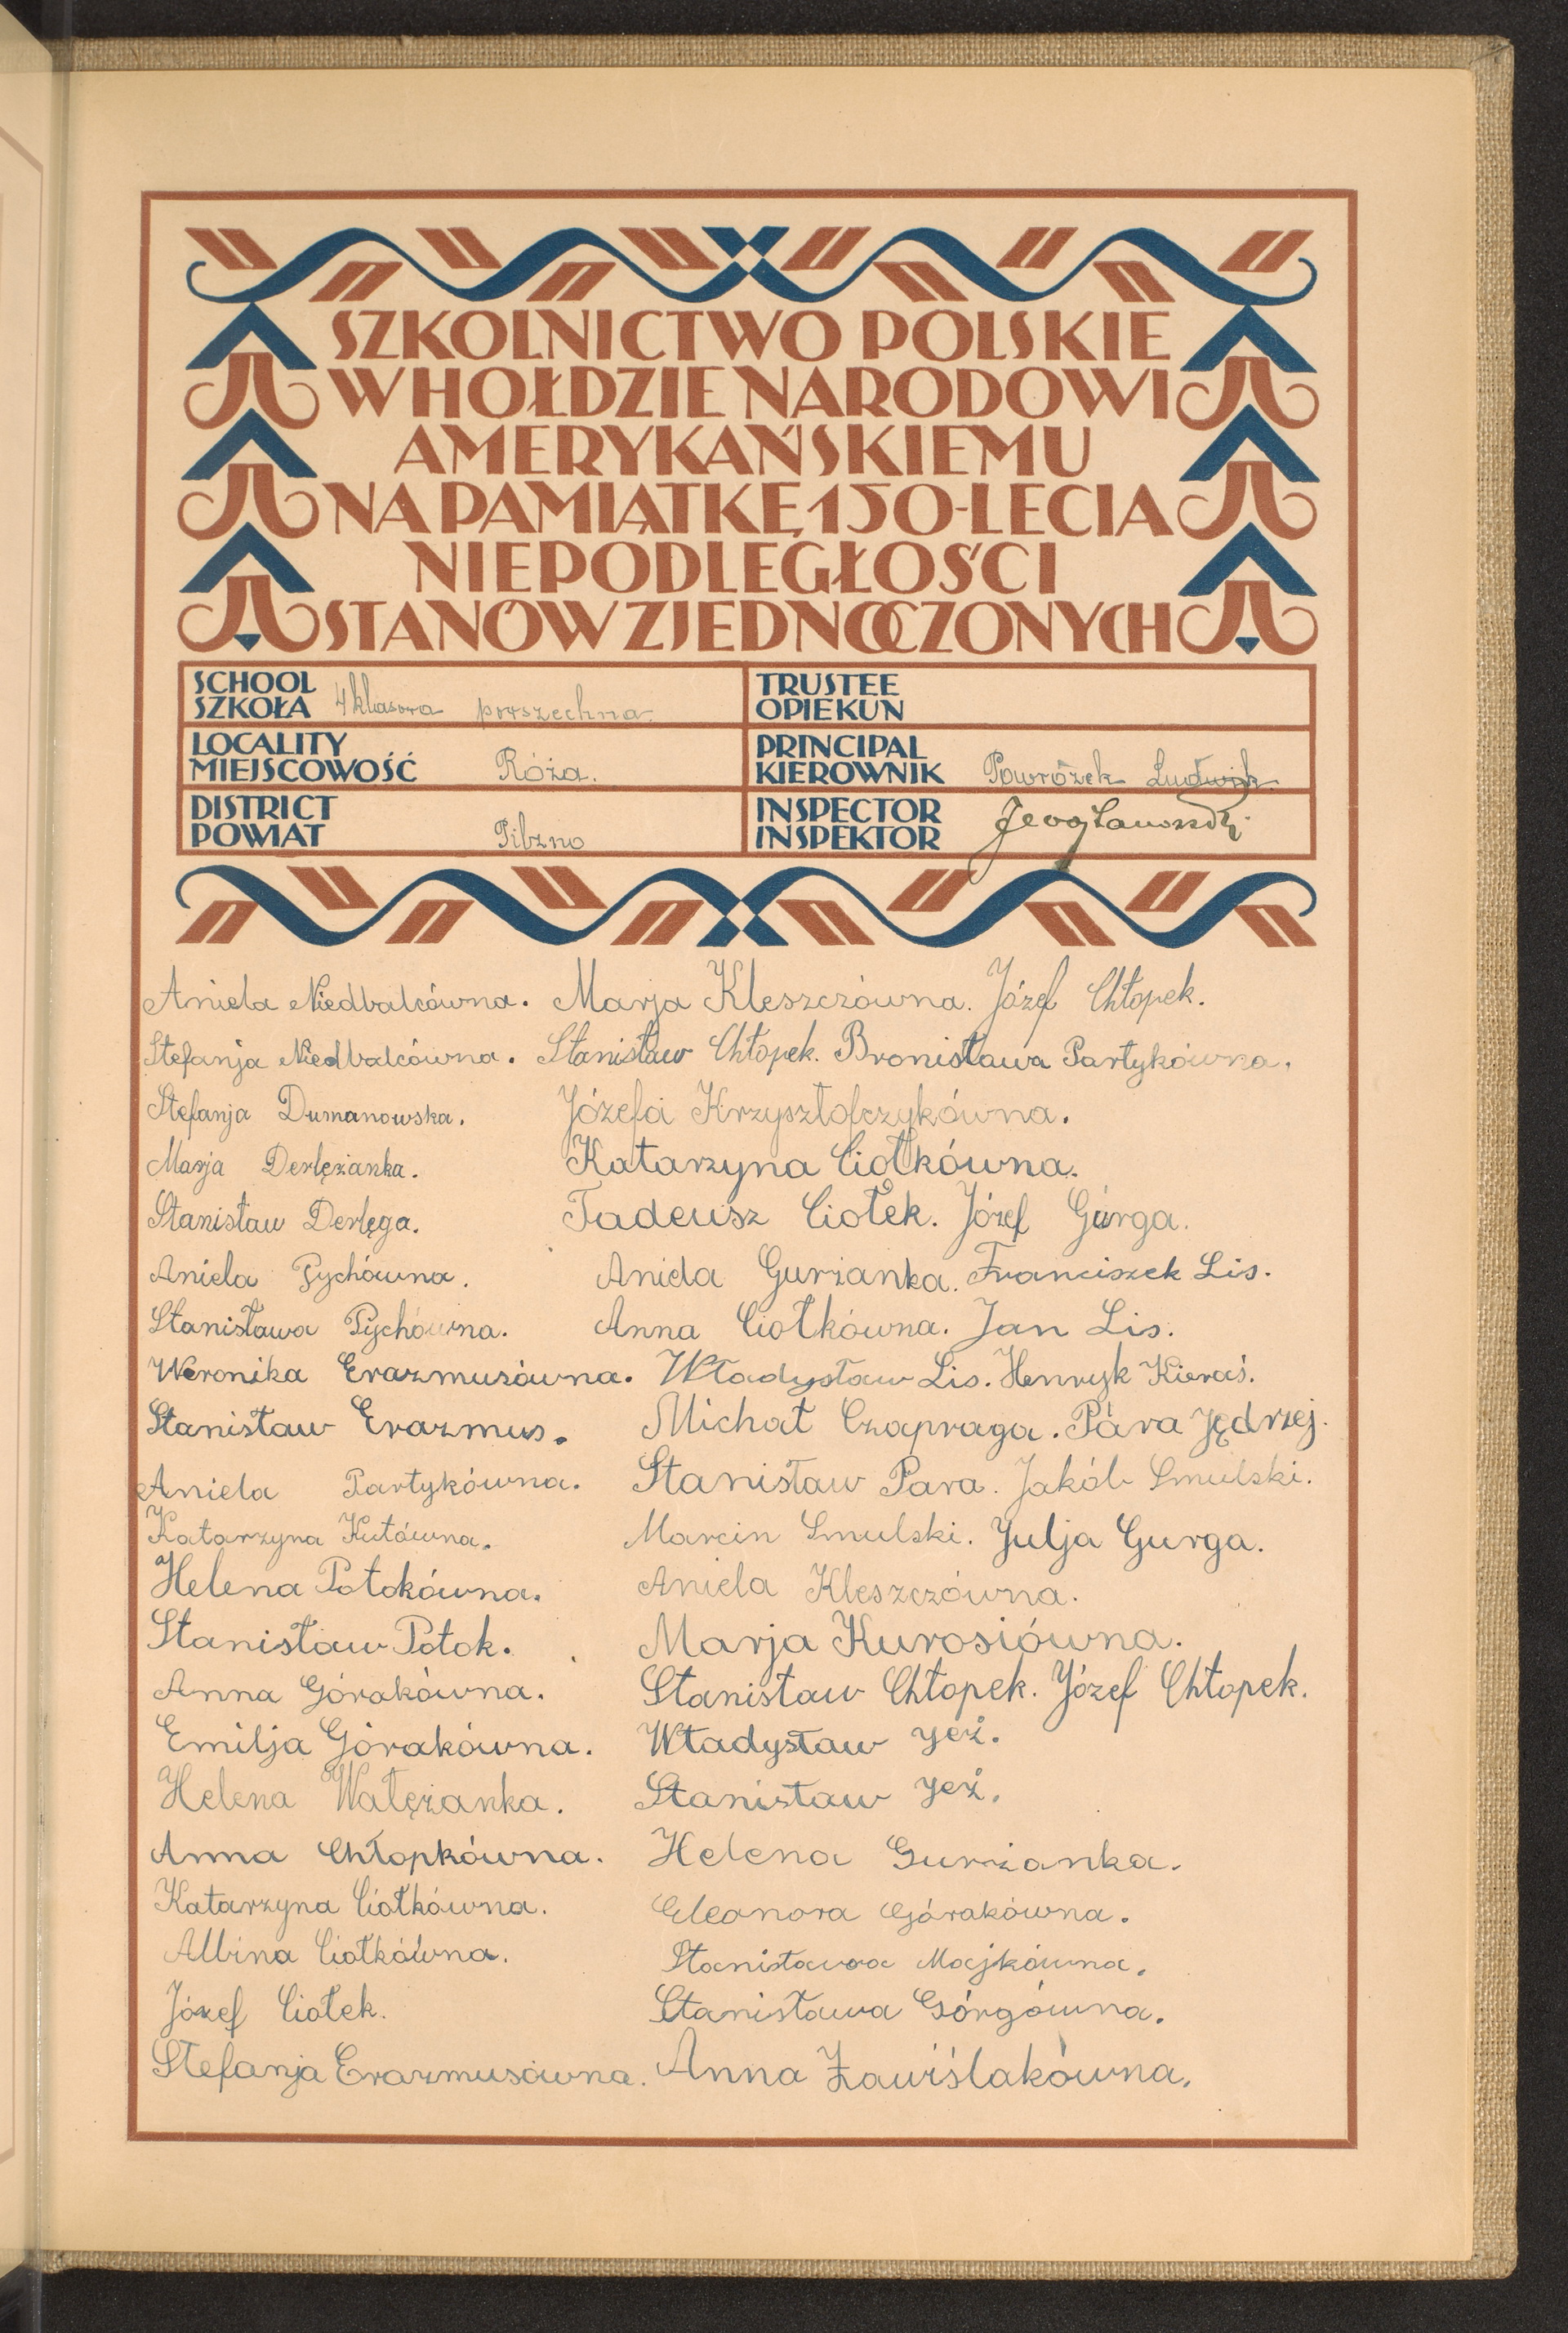 SZKOLNICTWO POLSKIE
W HOŁDZIE NARODOWI
AMERYKAŃSKIEMU
NA PAMIĄTKĘ 150-LECIA
NIEPODLEGŁOŚCI
STANÓW ZJEDNOCZONYCH
SCHOOL
SZKOŁA 4 klasowa powszechna.
TRUSTEE
OPIEKUN
LOCALITY
MIEJSCOWOŚĆ Róża.
PRINCIPAL
KIEROWNIK Powrózek Ludwik
DISTRICT
POWIAT Pilzno
INSPECTOR
INSPEKTOR
Aniela Niedbalcówna. Marja Kleszczówna. Józef Chłopek.
Stefanja Niedbalcówna. Stanisław Chłopek. Bronisława Partykówna.
Stefanja Dumanowska. Józefa Krzysztofczykówna.
Marja Derlężanka. Katarzyna Ciołkówna.
Stanisław Derlęga. Tadeusz Ciołek. Józef Gurga.
Aniela Pychówna. Aniela Gurżanka. Franciszek Lis.
Stanisława Pychówna. Anna Ciołkówna. Jan Lis.
Weronika Erazmusówna. Władysław Lis. Henryk Kieraś.
Stanisław Erazmus. Michał Czapraga. Para Jędrzej.
Aniela Partykówna. Stanisław Para. Jakób Smulski.
Katarzyna Kutówna. Marcin Smulski. Julja Gurga.
Helena Potokówna. Aniela Kleszczówna.
Stanisław Potok. Marja Kurosiówna.
Anna Górakówna. Stanisław Chłopek. Józef Chłopek.
Emilja Górakówna. Władysław Jeż.
Helena Wałężanka. Stanisław Jeż.
Anna Chłopkówna. Helena Gurżanka.
Katarzyna Ciołkówna. Eleonora Górakówna.
Albina Ciołkówna. Stanisława Majkówna.
Józef Ciołek. Stanisława Górgówna.
Stefanja Erazmusówna. Anna Zawiślakówna.